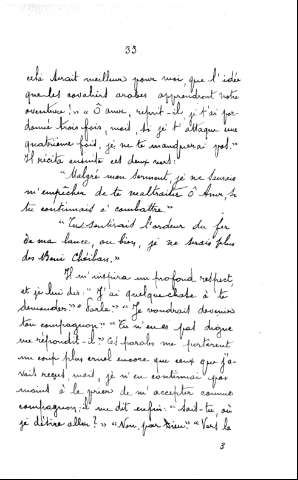 33
cela serait meilleur pour moi, que l'idée
que les cavaliers arabes apprendront notre
aventure!" "Ô Amr, reprit-il, je t'ai par-
donné trois fois, mais, si je t'attaque une
quatrième fois, je ne te manquerai pas."
Il récita ensuite ces deux vers:
"Malgré mon serment, je ne saurais
m'empêcher de te maltraiter Ô Amr, si
tu continuais à combattre."
"Tu sentirais l'ardeur du fer
de ma lance, ou bien, je ne serais plus
des Beni Cheïban."
Il m'inspira un profond respect,
et je lui dis: "J'ai quelque chose à te
demander." "Parle." "Je voudrais devenir
ton compagnon." "Tu n'en es pas digne
me répondit-il." Ces paroles me portèrent
un coup plus cruel encore que ceux que j'a-
vais reçus, mais, je n'en continuai pas
moins à le prier de m'accepter comme
compagnon; il me dit enfin: "Sais-tu, où
je désire aller?" "Non, par Dieu." "Vers la
3